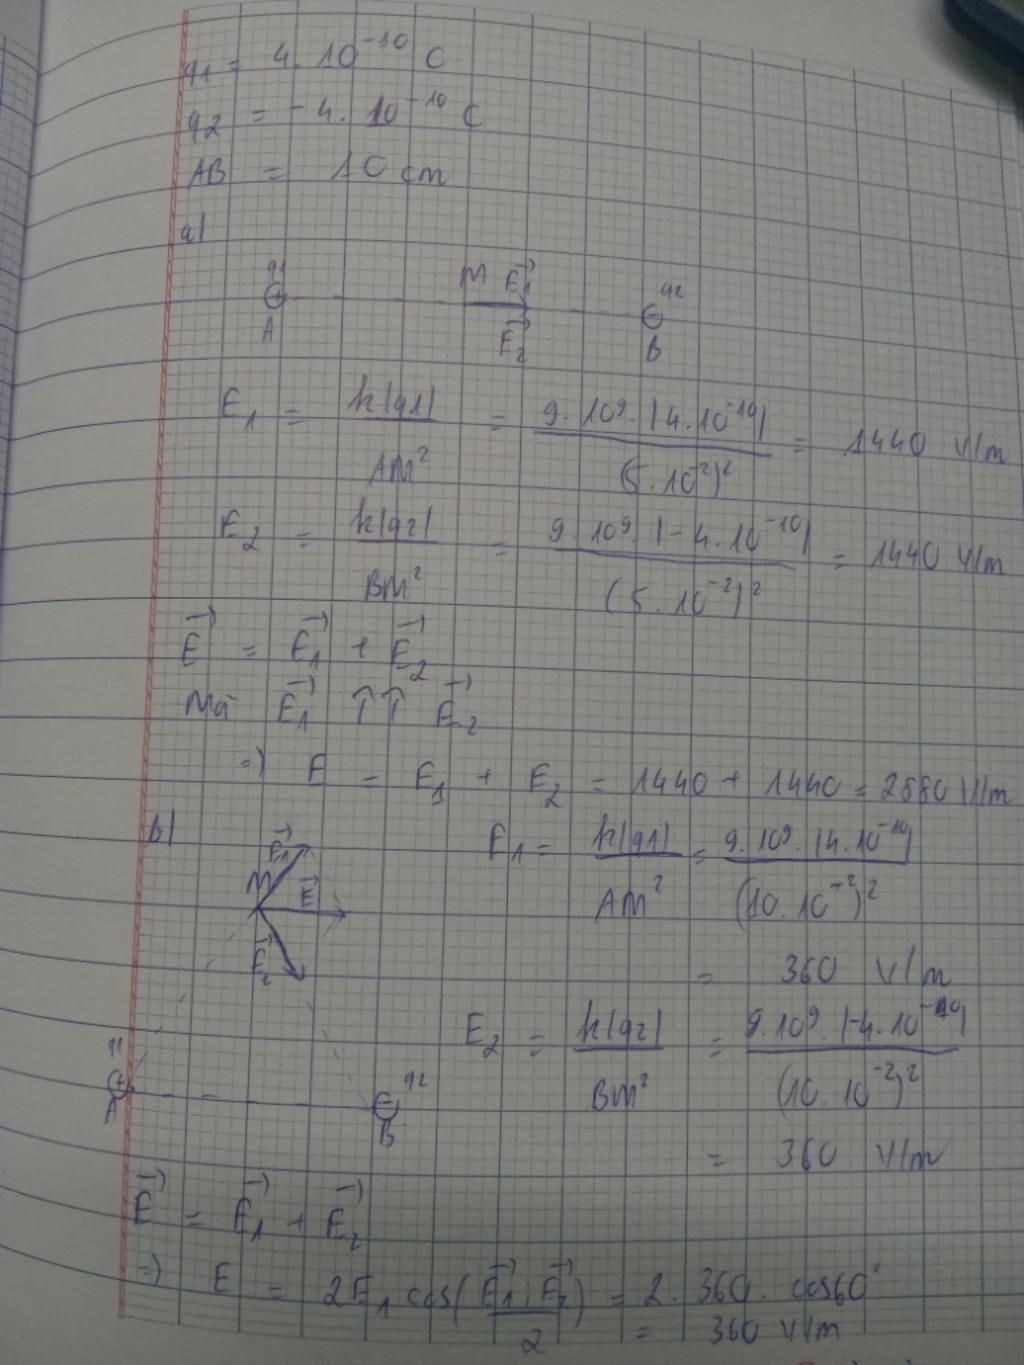 q1 = 4. 10⁻¹⁰ C
q2 = -4. 10⁻¹⁰ C
AB = 10 cm
a)
q1 M E₁→ q2
A E₂→ B
E₁ = k|q1| / AM² = 9. 10⁹. |4.10⁻¹⁰| / (5.10⁻²)² = 1440 V/m
E₂ = k|q2| / BM² = 9. 10⁹. |-4.10⁻¹⁰| / (5.10⁻²)² = 1440 V/m
E→ = E₁→ + E₂→
Mà E₁→ ↑↑ E₂→
=) E = E₁ + E₂ = 1440 + 1440 = 2880 V/m
b) E₁→ M E→ E₂→
E₁ = k|q1| / AM² = 9. 10⁹. |4.10⁻¹⁰| / (10.10⁻²)²
= 360 V/m
E₂ = k|q2| / BM² = 9.10⁹. |-4.10⁻¹⁰| / (10.10⁻²)²
q1 + A q2 - B
= 360 V/m
E→ = E₁→ + E₂→
=) E = 2E₁ cos(E₁→; E₂→ / 2) = 2. 360. cos60°
= 360 V/m